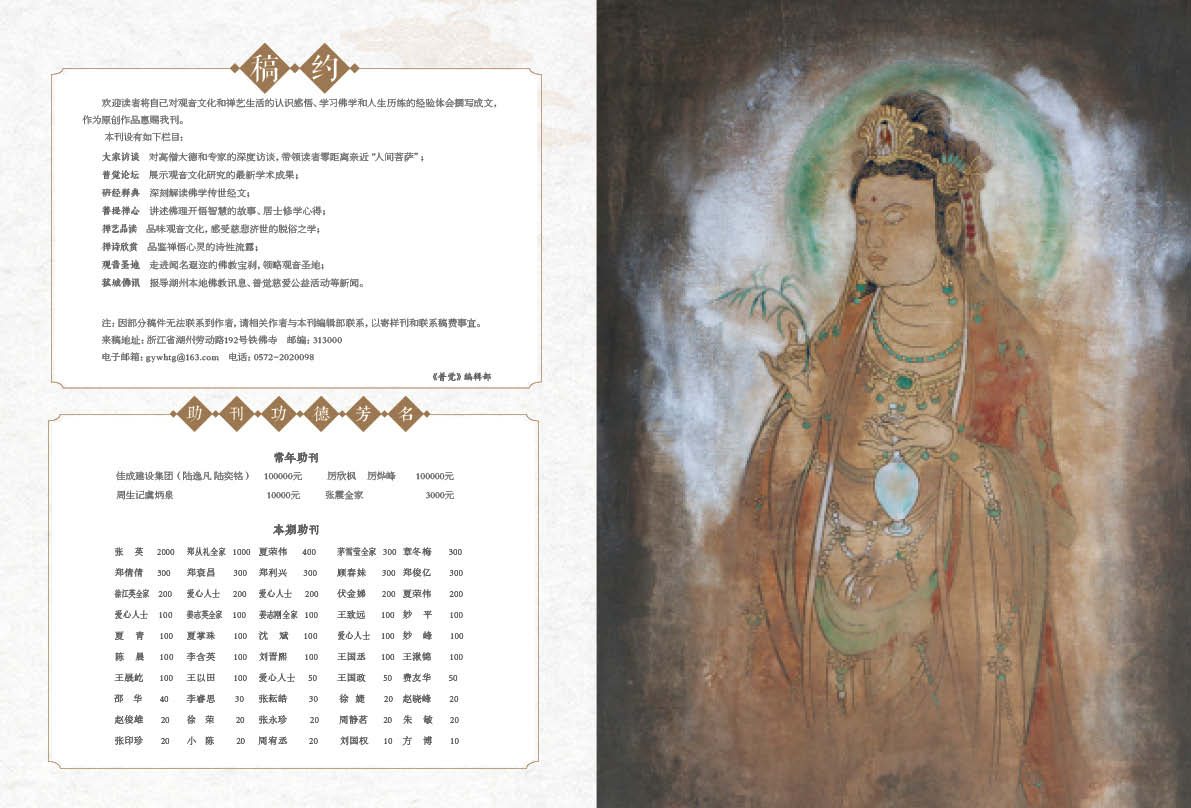 稿约
欢迎读者将自己对观音文化和禅艺生活的认识感悟、学习佛学和人生历练的经验体会撰写成文，
作为原创作品惠赐我刊。
本刊设有如下栏目：
大家访谈 对高僧大德和专家的深度访谈，带领读者零距离亲近“人间菩萨”；
普觉论坛 展示观音文化研究的最新学术成果；
研经释典 深刻解读佛学传世经文；
菩提禅心 讲述佛理开悟智慧的故事、居士修学心得；
禅艺品读 品味观音文化，感受慈悲济世的脱俗之学；
禅诗欣赏 品鉴禅悟心灵的诗性流露；
观音圣地 走进闻名遐迩的佛教宝刹，领略观音圣地；
菰城佛讯 报导湖州本地佛教讯息、普觉慈爱公益活动等新闻。
注：因部分稿件无法联系到作者，请相关作者与本刊编辑部联系，以寄样刊和联系稿费事宜。
来稿地址：浙江省湖州劳动路192号铁佛寺 邮编：313000
电子邮箱：gywhtg@163.com 电话：0572-2020098
《普觉》编辑部
助刊功德芳名
常年助刊
佳成建设集团（陆逸凡 陆奕铭） 100000元 厉欣枫 厉烨峰 100000元
周生记虞炳泉 10000元 张震全家 3000元
本期助刊
张 英 2000 郑从礼全家 1000 夏荣伟 400 茅雪莹全家 300 章冬梅 300
郑倩倩 300 郑衰昌 300 郑利兴 300 顾春妹 300 郑俊亿 300
徐江英全家 200 爱心人士 200 爱心人士 200 伏金娣 200 夏荣伟 200
爱心人士 100 姜志英全家 100 姜志刚全家 100 王致远 100 妙 平 100
夏 青 100 夏掌珠 100 沈 斌 100 爱心人士 100 妙 峰 100
陈 晨 100 李含英 100 刘晋熙 100 王国丞 100 王淑锦 100
王晨屹 100 王以田 100 爱心人士 50 王国政 50 费友华 50
邵 华 40 李睿思 30 张耘皓 30 徐 婕 20 赵晓峰 20
赵俊雄 20 徐 荣 20 张永珍 20 周静茗 20 朱 敏 20
张印珍 20 小 陈 20 周宥丞 20 刘国权 10 方 博 10